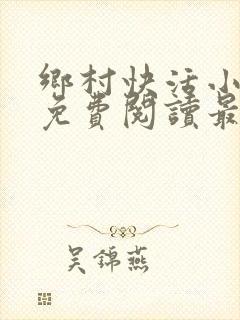 鄉村快活小
免費閱讀最
吳錦燕